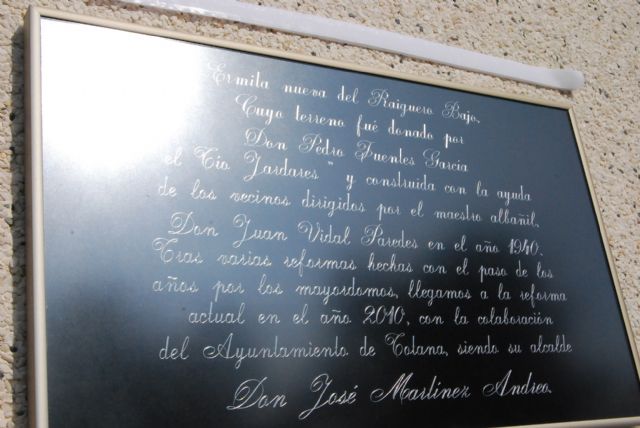 Ermita nueva del Raiguero Bajo,
Cuyo terreno fué donado por
Don Pedro Fuentes García
el Tío Jardares " y construida con la ayuda
de los vecinos dirigidos por el maestro albañil,
Don Juan Vidal Paredes en el año 1940.
Tras varias reformas hechas con el paso de los
años por los mayordomos, llegamos a la reforma
actual en el año 2010, con la colaboración
del Ayuntamiento de Totana, siendo su alcalde
Don José Martínez Andreo.